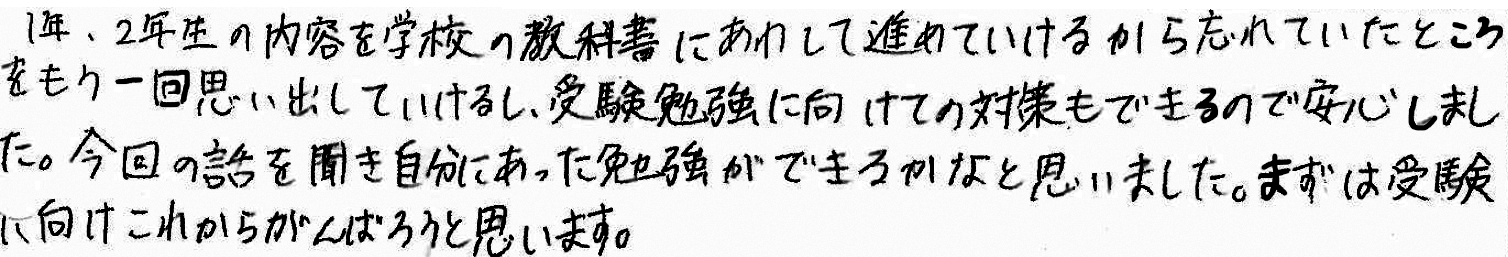 1年、2年生の内容を学校の教科書にあわして進めていけるから忘れていたところ
をもう一回思い出していけるし、受験勉強に向けての対策もできるので安心しまし
た。今回の話を聞き自分にあった勉強ができるかなと思いました。まずは受験
に向けこれからがんばろうと思います。